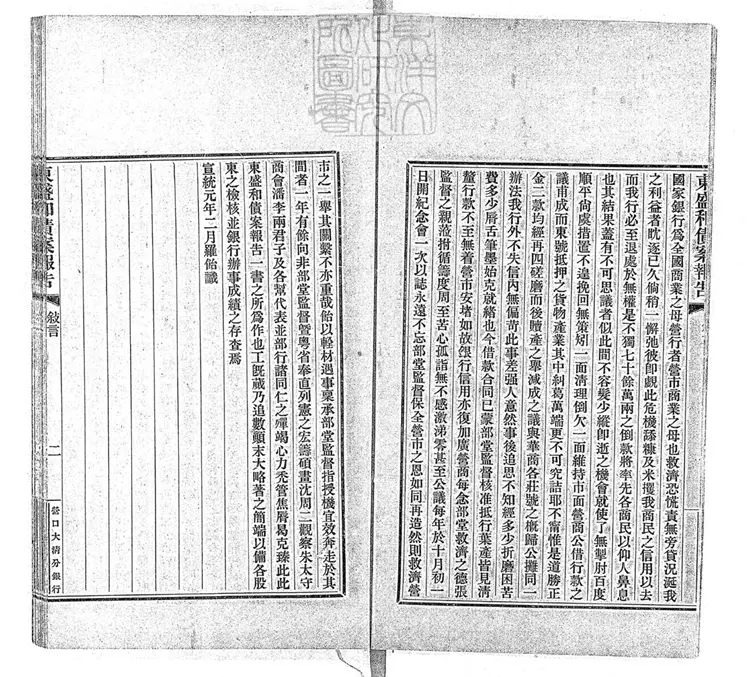 東洋文化研究所圖書
東盛和債案報告
國家銀行爲全國商業之母營行者營市商業之母也救濟恐慌責無旁貸況涎我
之利益者眈逐已久倘稍一懈弛彼卽覰此危機舔糠及米攫我商民之信用以去
而我行必至退處於無權是不獨七十餘萬兩之倒款將率先各商民以仰人鼻息
也其結果蓋有不可思議者似此間不容髮少縱卽逝之機會就使了無掣肘百度
順平尙處措置不遑挽回無策矧一面清理倒欠一面維持市面營商公借行款之
議甫成而東號抵押之貨物產業其中糾葛萬端更不可究詰耶不甯惟是道勝正
金二款均經再四磋磨而後贖產之舉減成之議與華商各莊號之槪歸公攤同一
辦法我行外不失信內無偏苛此事差强人意然事後追思不知經多少折磨困苦
費多少唇舌筆墨始克就緒也今借款合同已蒙部堂監督核准抵行葉產皆見淸
釐行款不至無着營市安堵如故銀行信用亦復加廣營商每念部堂救濟之德張
監督之親蒞拊循籌度周至苦心孤詣無不感激涕零甚至公議每年於十月初一
日開紀念會一次以誌永遠不忘部堂監督保全營市之恩如同再造然則救濟營
市之一舉其關繫不亦重哉飴以輇材遇事稟承部堂監督指授機宜效奔走於其
間者一年有餘向非部堂監督曁粵省奉直列憲之宏籌碩畫沈周二觀察朱太守
商會潘李兩君子及各幫代表並部行諸同仁之殫竭心力禿管焦脣曷克臻此此
東盛和債案報告一書之所爲作也工旣蕆乃追數顚末大略著之簡端以備各股
東之檢核並銀行辦事成績之存查焉
宣統元年二月羅飴識
東盛和債案報告
敍言
二
營口大清分銀行